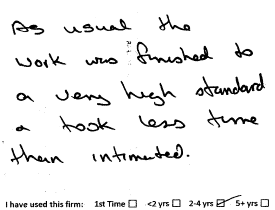 As usual the
work was finished to
a very high standard
a took less time
than intimated.
I have used this firm: 1st Time ☐ <2 yrs ☐ 2-4 yrs ☑ 5+ yrs ☐